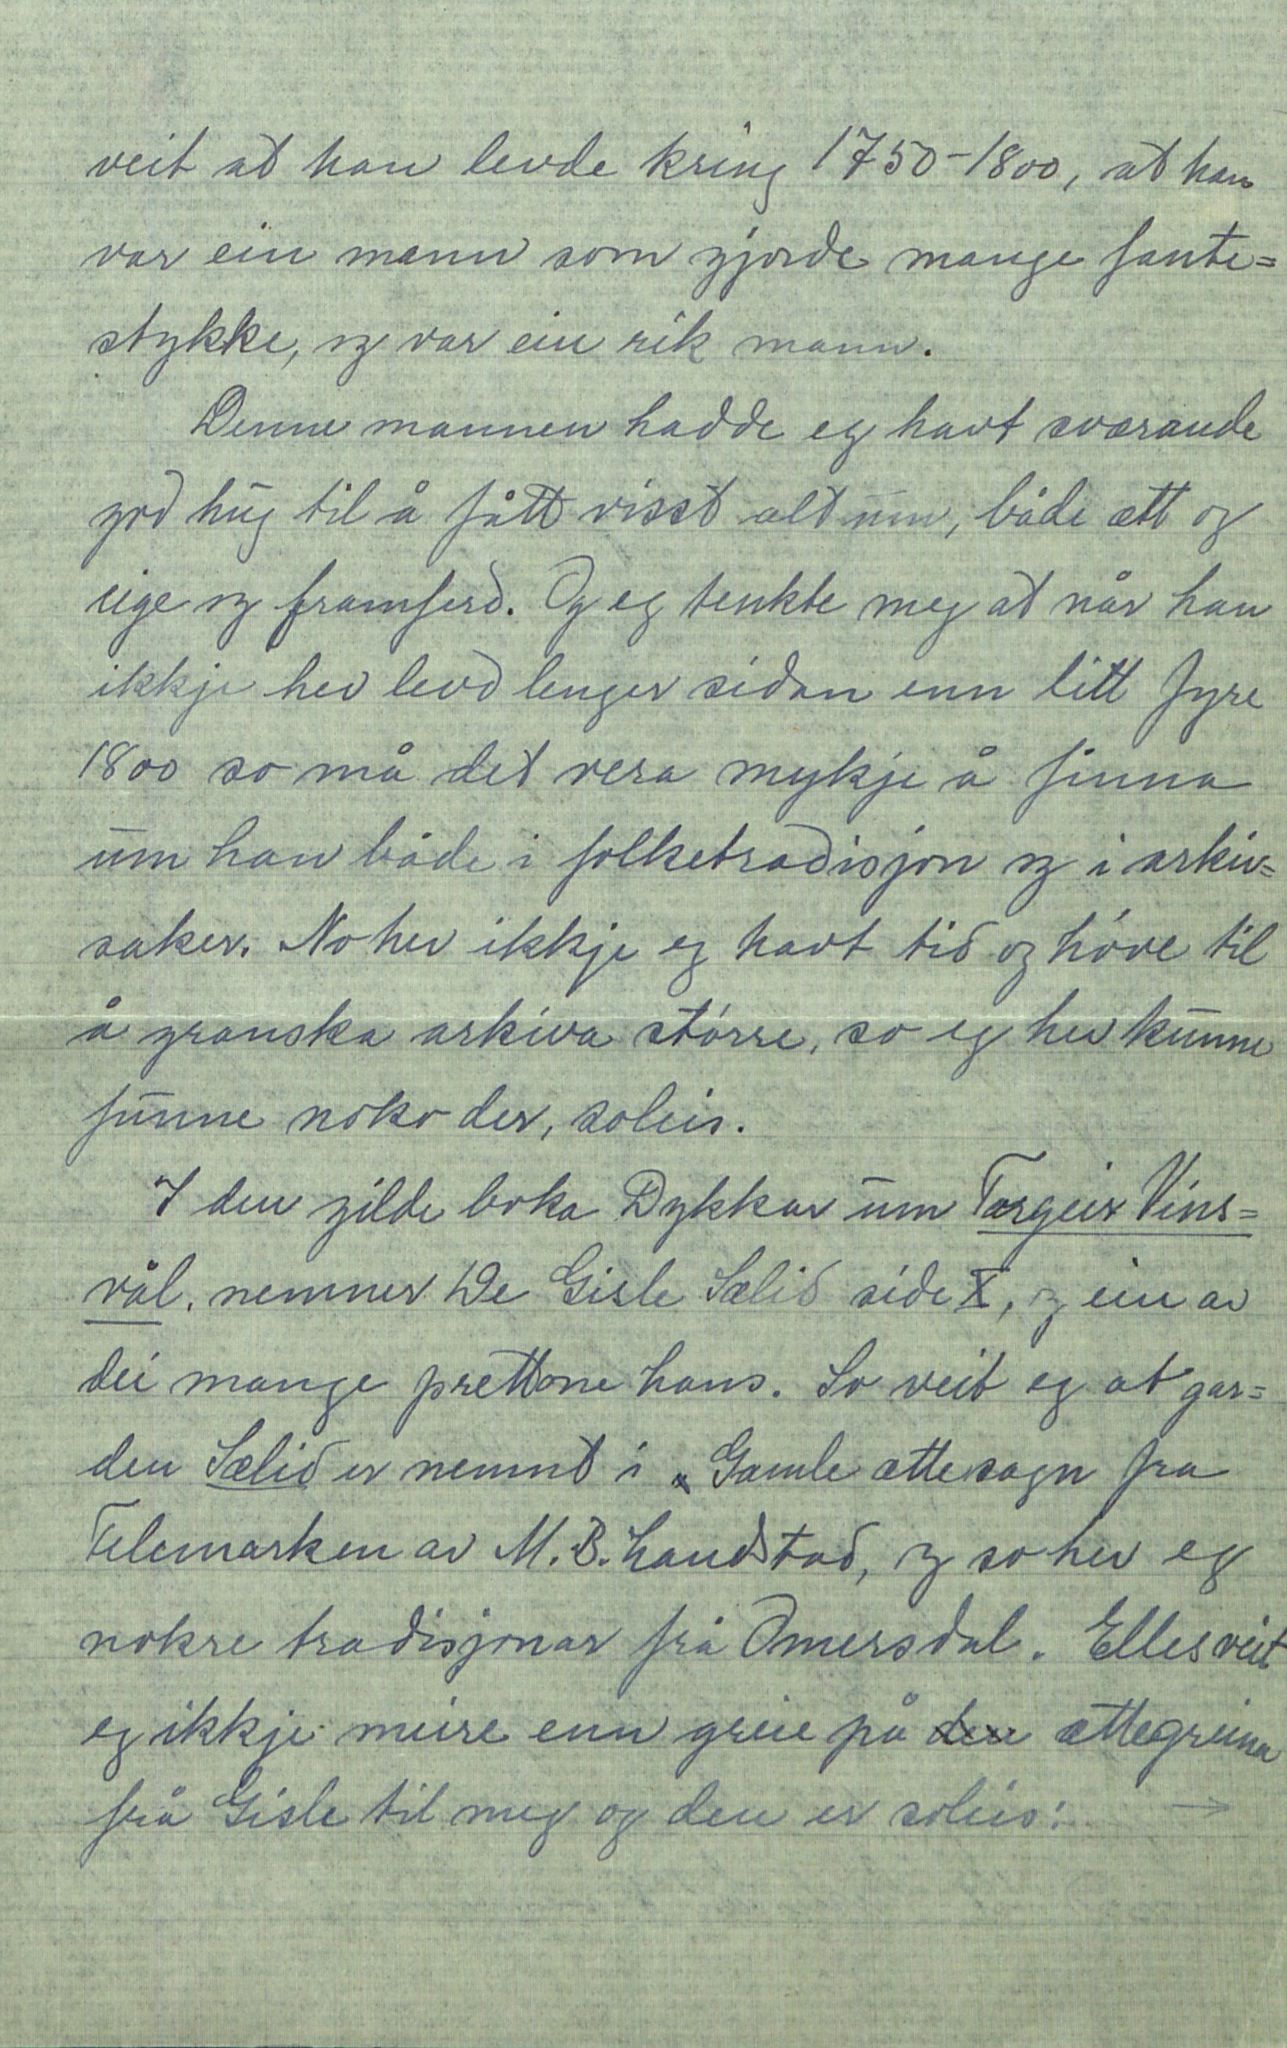 veit at han levde kring 1750-1800, at han
var ein mann som gjorde mange fante=
stykke, og var ein rik mann.
Denne mannen hadde eg havt sværande
god hug til å fått visst alt um, både ætt og
eige og framferd. Og eg tenkte meg at når han
ikkje hev levd lenger sidan enn litt fyre
1800 so må det vera mykje å finna
um han både i folketradisjon og i arkiv=
saker. No hev ikkje eg havt tid og høve til
å granska arkiva større, so eg hev kunne
funne noko der, soleis.
I den gilde boka Dykkar um Targeir Vins=
vål. nemner De Gisle Sælid side X, og ein av
dei mange prettone hans. So veit eg at gar=
den Sælid er nemnt i Gamle ættesagn fra
Telemarken av M. B. Landstad, og so hev eg
nokre tradisjonar frå Omersdal. Elles veit
eg ikkje meire enn greie på den ættegreina
frå Gisle til meg og den er soleis: →